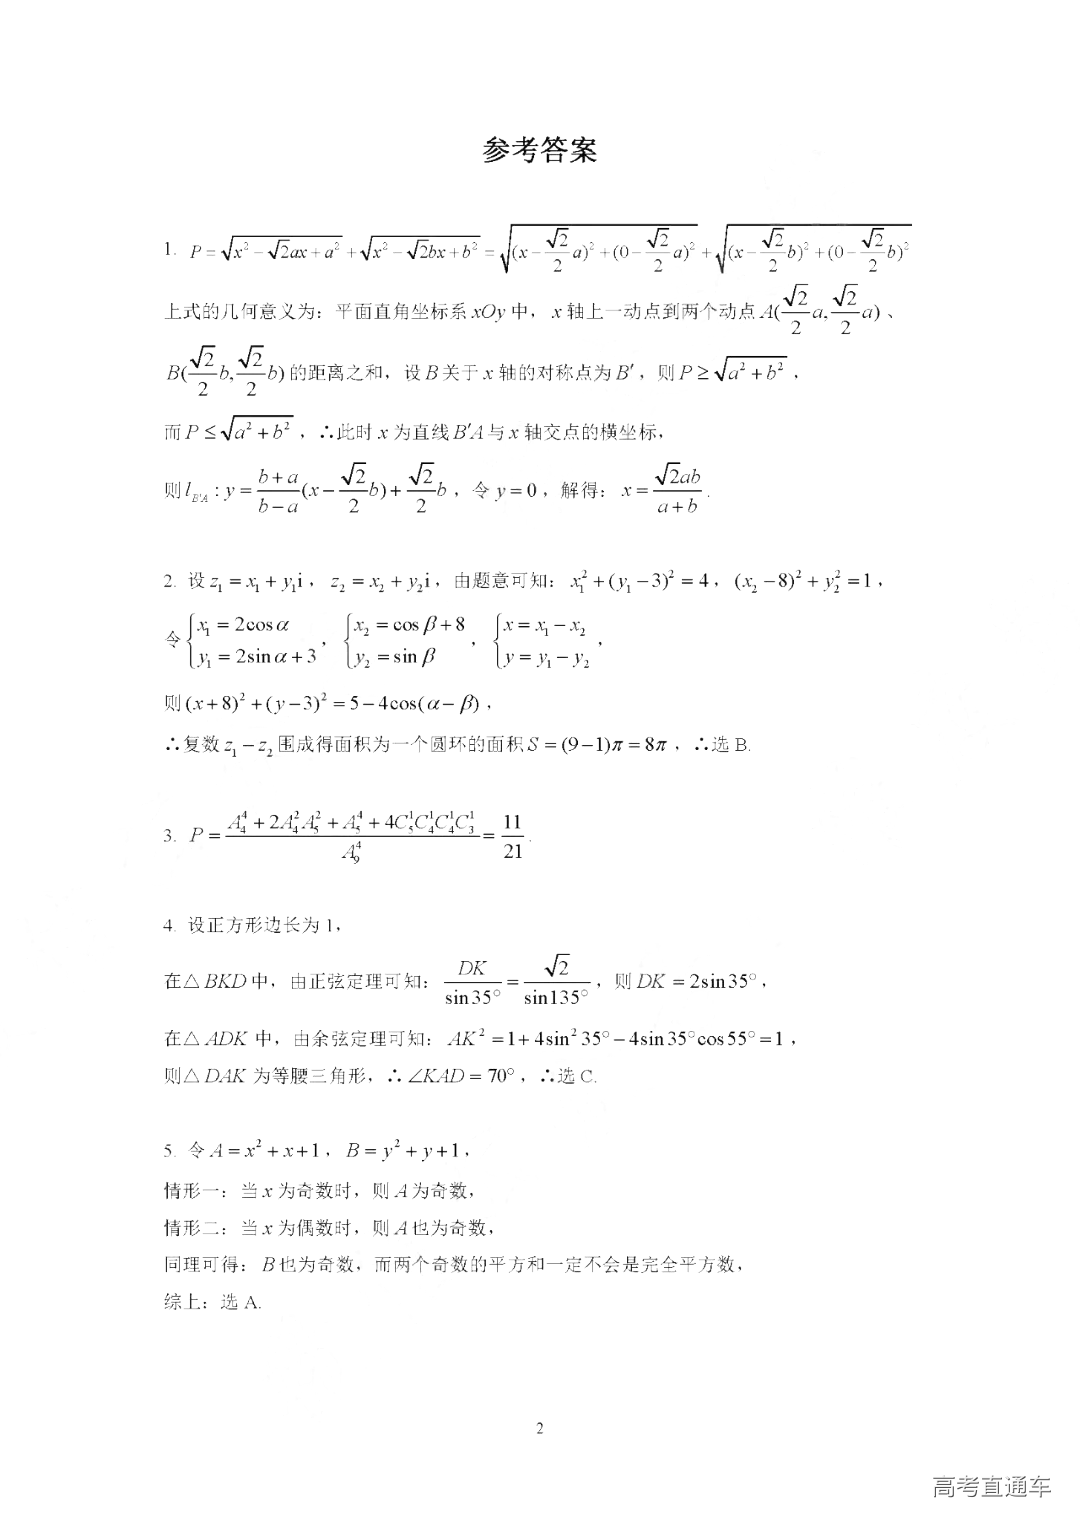 参考答案
1. P = √(x² − √2ax + a²) + √(x² − √2bx + b²) = √((x − √2/2 a)² + (0 − √2/2 a)²) + √((x − √2/2 b)² + (0 − √2/2 b)²)
上式的几何意义为：平面直角坐标系 xOy 中，x 轴上一动点到两个动点 A(√2/2 a, √2/2 a)、
B(√2/2 b, √2/2 b) 的距离之和，设 B 关于 x 轴的对称点为 B′，则 P ≥ √(a² + b²)，
而 P ≤ √(a² + b²)，∴此时 x 为直线 B′A 与 x 轴交点的横坐标，
则 l_{B′A} : y = (b + a)/(b − a) (x − √2/2 b) + √2/2 b，令 y = 0，解得：x = √2ab/(a + b).
2. 设 z₁ = x₁ + y₁i，z₂ = x₂ + y₂i，由题意可知：x₁² + (y₁ − 3)² = 4，(x₂ − 8)² + y₂² = 1，
令 {x₁ = 2cosα, y₁ = 2sinα + 3，{x₂ = cosβ + 8, y₂ = sinβ，{x = x₁ − x₂, y = y₁ − y₂，
则 (x + 8)² + (y − 3)² = 5 − 4cos(α − β)，
∴复数 z₁ − z₂ 围成得面积为一个圆环的面积 S = (9 − 1)π = 8π，∴选 B.
3. P = (A₄⁴ + 2A₄²A₅² + A₅⁴ + 4C₅¹C₄¹C₄¹C₃¹)/A₉⁴ = 11/21.
4. 设正方形边长为 1，
在△BKD 中，由正弦定理可知：DK/sin35° = √2/sin135°，则 DK = 2sin35°，
在△ADK 中，由余弦定理可知：AK² = 1 + 4sin²35° − 4sin35°cos55° = 1，
则△DAK 为等腰三角形，∴∠KAD = 70°，∴选 C.
5. 令 A = x² + x + 1，B = y² + y + 1，
情形一：当 x 为奇数时，则 A 为奇数，
情形二：当 x 为偶数时，则 A 也为奇数，
同理可得：B 也为奇数，而两个奇数的平方和一定不会是完全平方数，
综上：选 A.
2
高考直通车